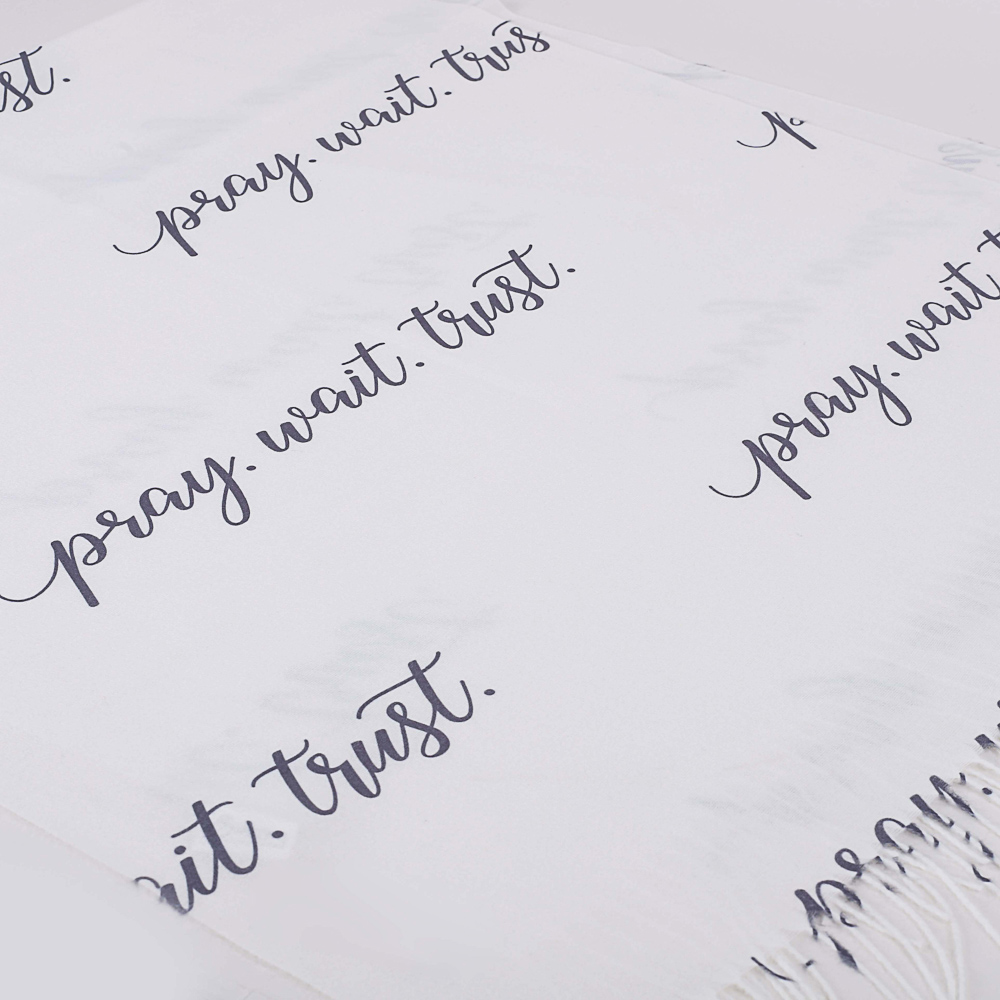 st.
pray. wait. trus
p
pray. wait. t
pray. wait. trust.
ait. trust.
pray.